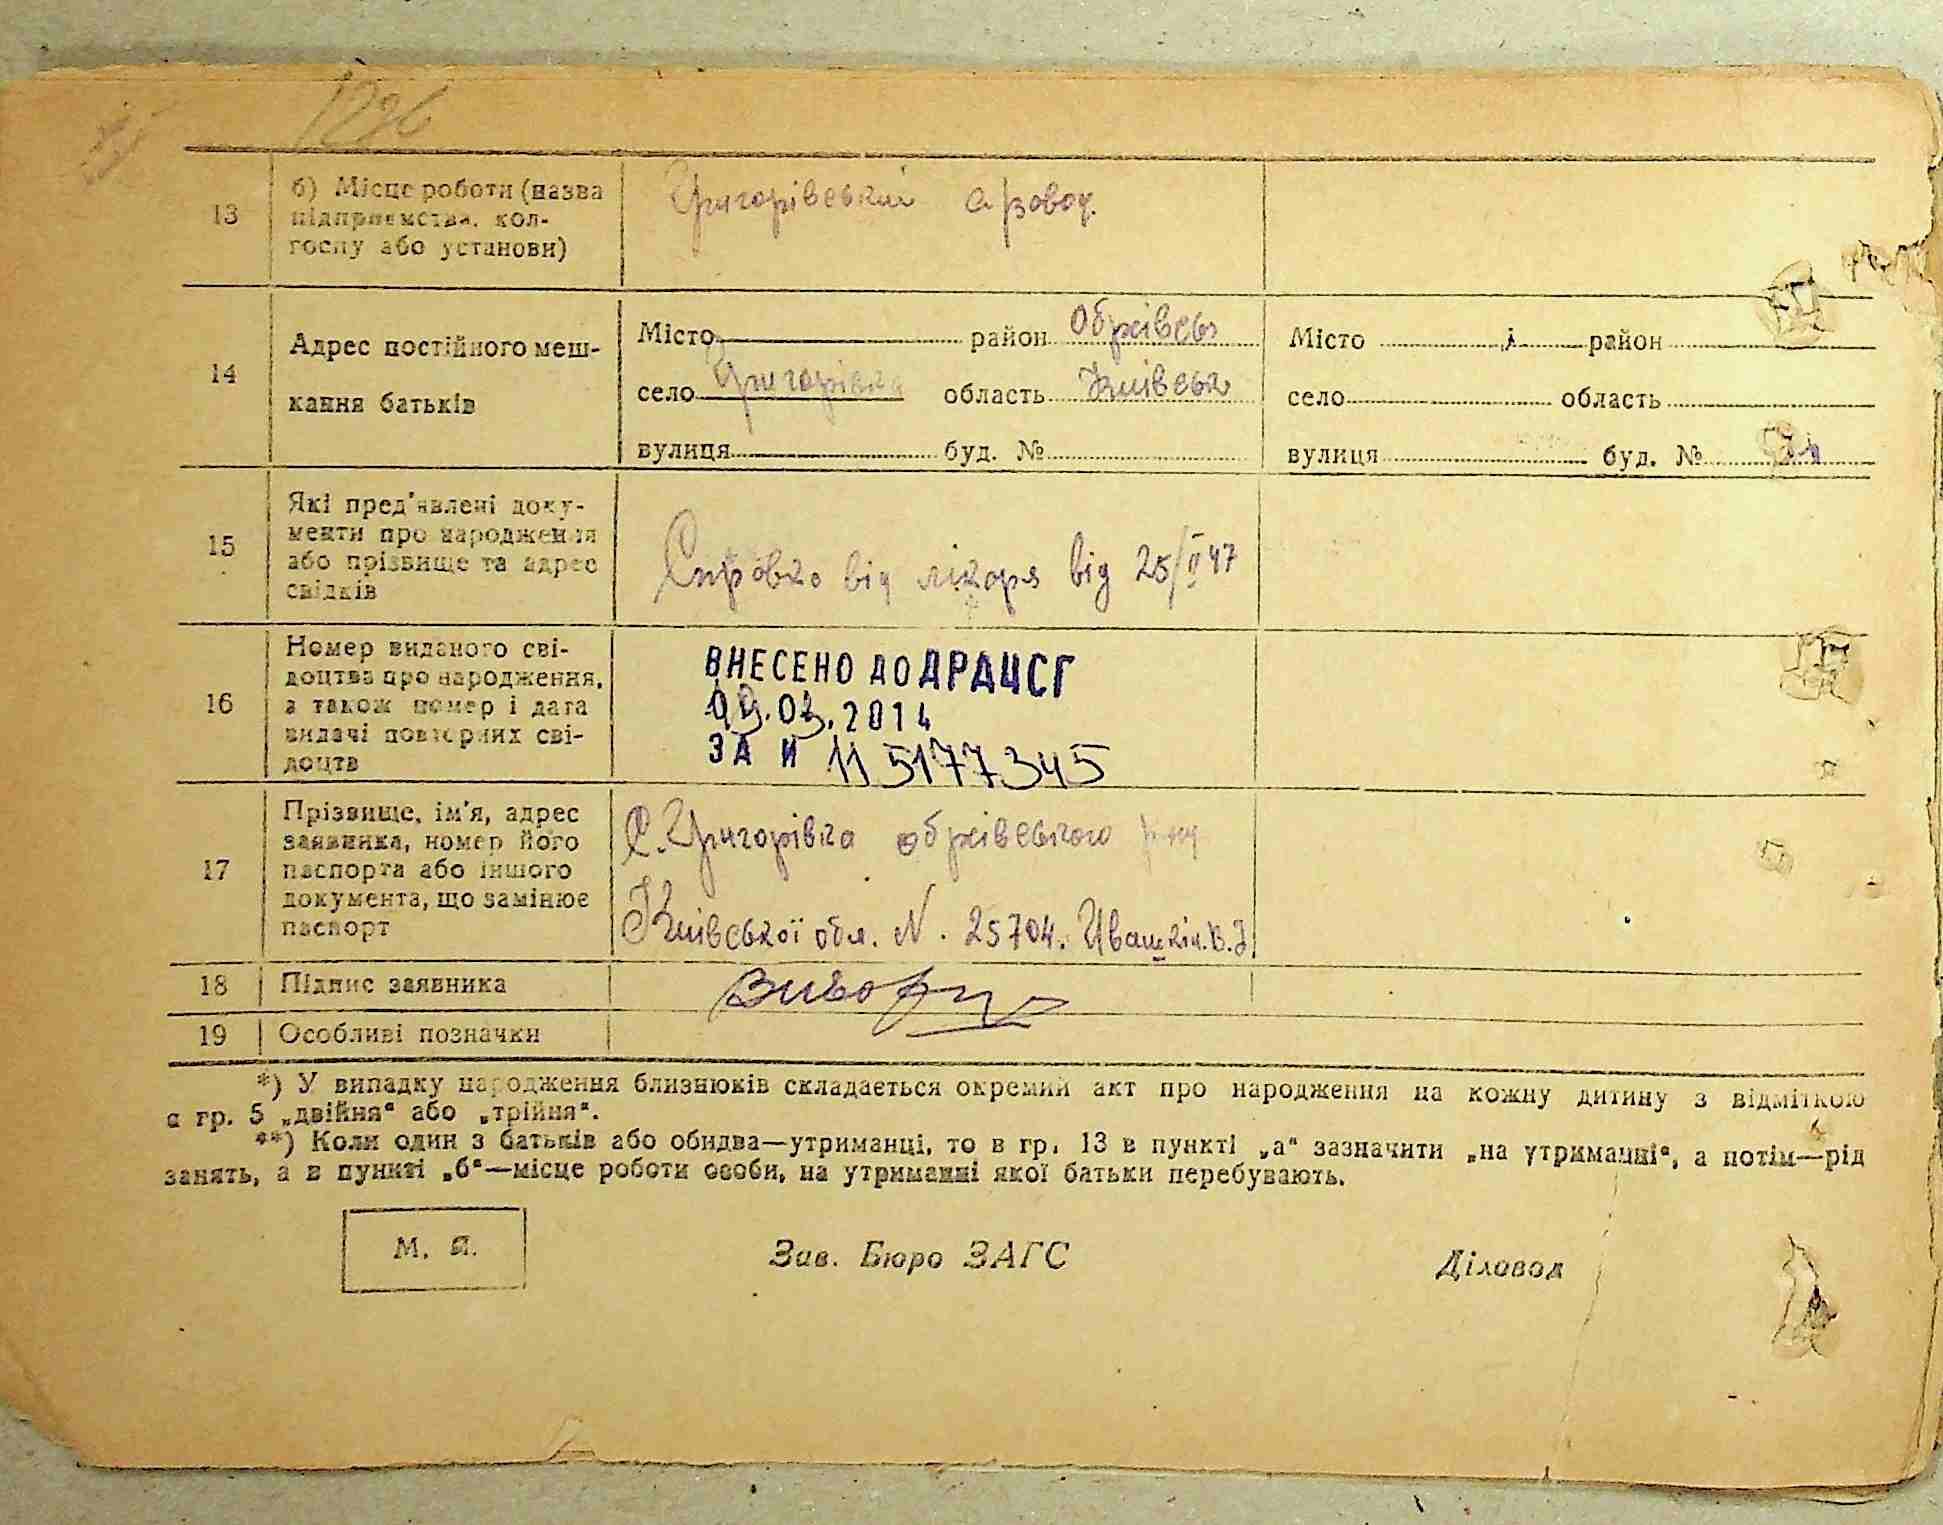 1226
13
б) Місце роботи (назва
підприємства, кол-
госпу або установи)
Григорівський
14
Адрес постійного меш-
кання батьків
Місто район Обхівськ
село Григорівка область Київськ
вулиця буд. №
Місто район
село область
вулиця буд. №
15
Які пред'явлені доку-
менти про народження
або прізвище та адрес
свідків
Справка від лікаря від 25/II 47
16
Номер виданого сві-
доцтва про народження,
а також номер і дата
видачі повторних сві-
доцтв
ВНЕСЕНО ДО ДРАЦСГ
09.03.2014
ЗА N 115177345
17
Прізвище, ім'я, адрес
заявника, номер його
паспорта або іншого
документа, що замінює
паспорт
С. Григорівка обхівського р-ну
Київської обл. N. 25704. Иващкін. В. І
18
Підпис заявника
19
Особливі позначки
*) У випадку народження близнюків складається окремий акт про народження на кожну дитину з відміткою
в гр. 5 „двійня“ або „трійня“.
**) Коли один з батьків або обидва—утриманці, то в гр. 13 в пункті „а“ зазначити „на утриманні“, а потім—рід
занять, а в пункті „б“—місце роботи особи, на утриманні якої батьки перебувають.
М. П.
Зав. Бюро ЗАГС
Діловод